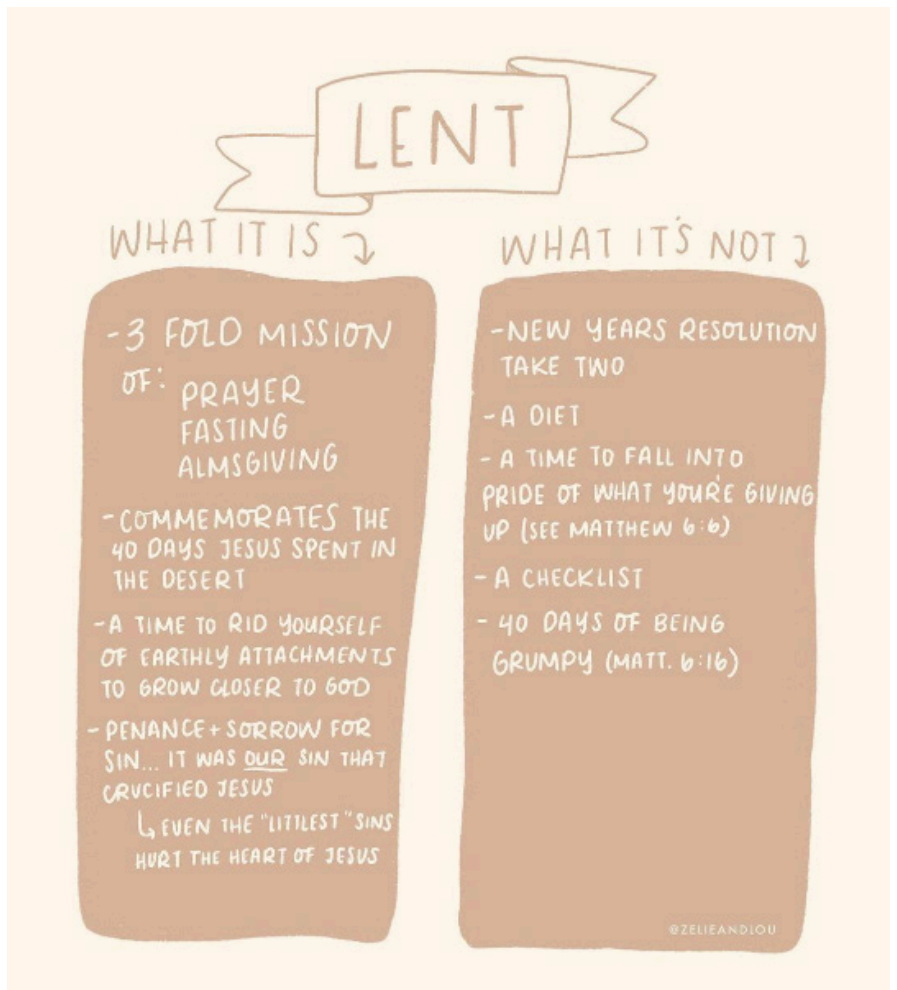 LENT
WHAT IT IS
- 3 FOLD MISSION
OF:
PRAYER
FASTING
ALMSGIVING
- COMMEMORATES THE
40 DAYS JESUS SPENT IN
THE DESERT
- A TIME TO RID YOURSELF
OF EARTHLY ATTACHMENTS
TO GROW CLOSER TO GOD
- PENANCE + SORROW FOR
SIN... IT WAS OUR SIN THAT
CRUCIFIED JESUS
↳ EVEN THE "LITTLEST" SINS
HURT THE HEART OF JESUS
WHAT IT'S NOT
- NEW YEARS RESOLUTION
TAKE TWO
- A DIET
- A TIME TO FALL INTO
PRIDE OF WHAT YOU'RE GIVING
UP (SEE MATTHEW 6:6)
- A CHECKLIST
- 40 DAYS OF BEING
GRUMPY (MATT. 6:16)
@ZELIEANDLOU